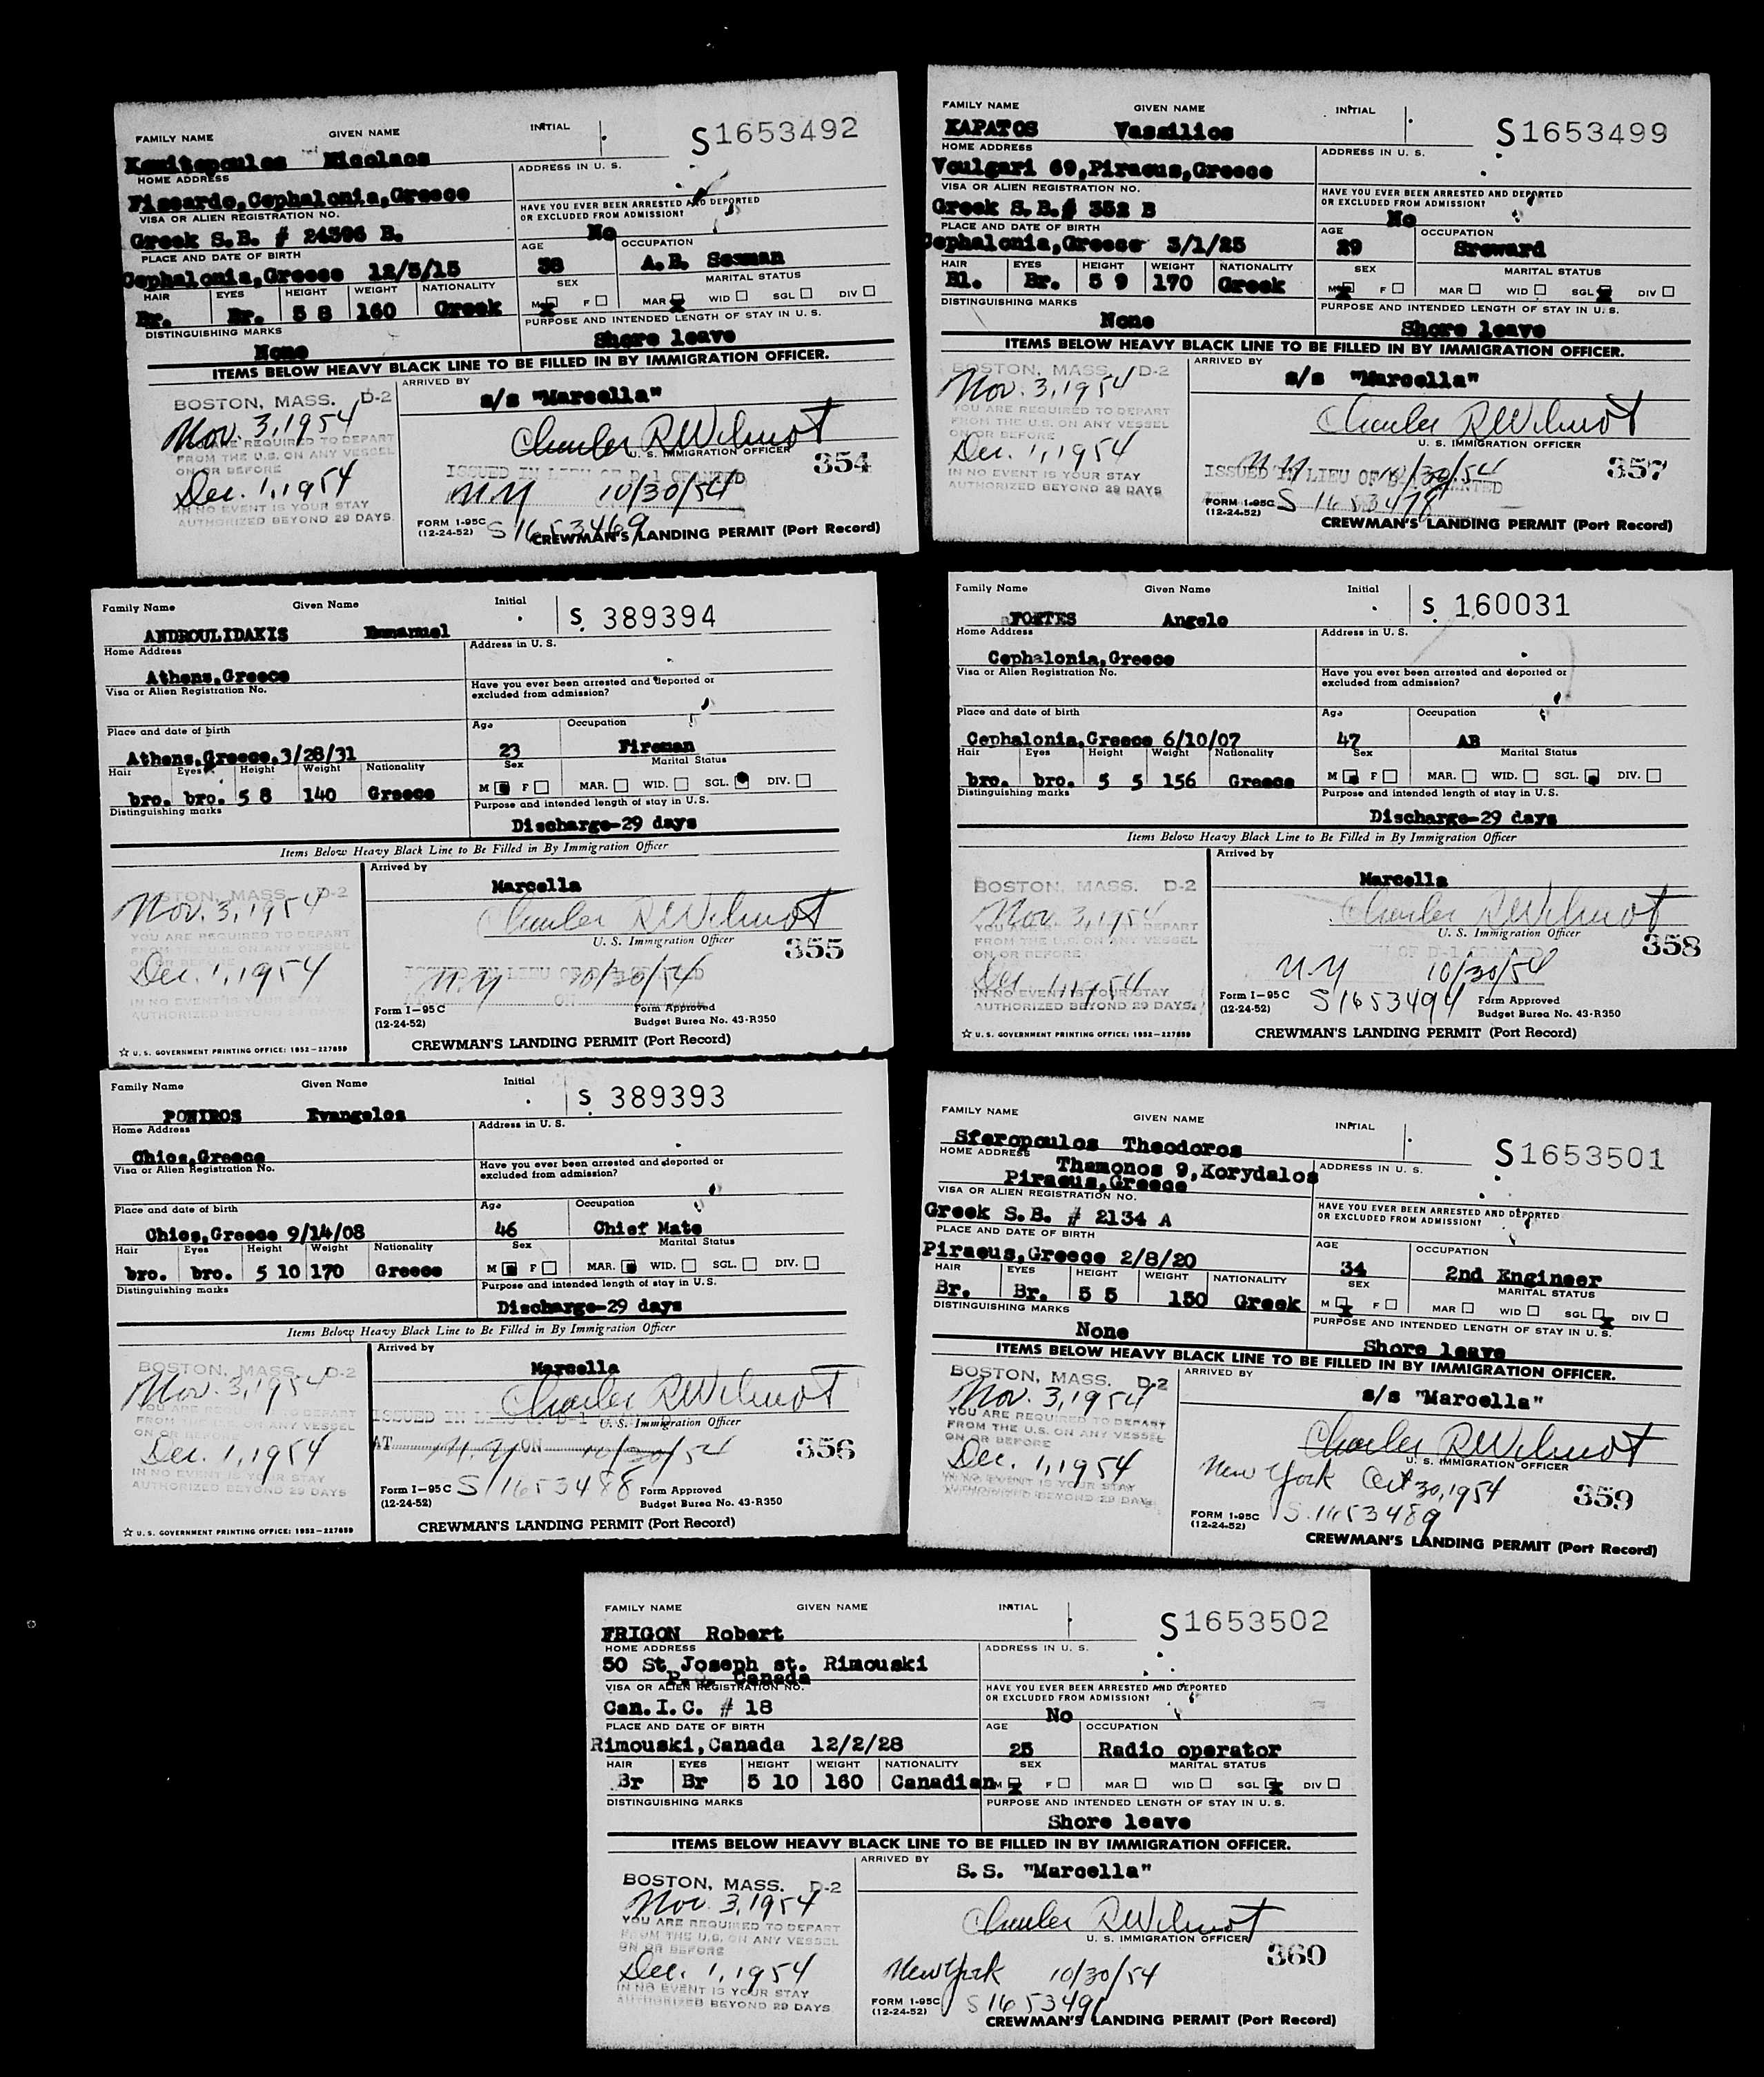 FAMILY NAME GIVEN NAME INITIAL S1653492
Nicolaos
HOME ADDRESS ADDRESS IN U. S.
Fiscardo,Cephalonia,Greece
VISA OR ALIEN REGISTRATION NO. HAVE YOU EVER BEEN ARRESTED AND DEPORTED OR EXCLUDED FROM ADMISSION?
Greek S.B. # 24396 B. No
PLACE AND DATE OF BIRTH AGE OCCUPATION
Cephalonia,Greece 12/5/15 38 A.B. Seaman
HAIR EYES HEIGHT WEIGHT NATIONALITY SEX MARITAL STATUS
Br. Br. 5 8 160 Greek M F MAR WID SGL DIV
DISTINGUISHING MARKS PURPOSE AND INTENDED LENGTH OF STAY IN U. S.
None Shore leave
ITEMS BELOW HEAVY BLACK LINE TO BE FILLED IN BY IMMIGRATION OFFICER.
ARRIVED BY
BOSTON, MASS. D-2 s/s "Marcella"
Nov. 3, 1954
YOU ARE REQUIRED TO DEPART Charles R Wilmot
FROM THE U.S. ON ANY VESSEL U. S. IMMIGRATION OFFICER
ON OR BEFORE ISSUED IN LIEU OF D-1 GRANTED 354
Dec. 1, 1954 N.Y 10/30/54
IN NO EVENT IS YOUR STAY
AUTHORIZED BEYOND 29 DAYS.
FORM I-95C S1653469
(12-24-52) CREWMAN'S LANDING PERMIT (Port Record)
FAMILY NAME GIVEN NAME INITIAL S1653499
KAPATOS Vassilios
HOME ADDRESS ADDRESS IN U. S.
Voulgari 69,Piraeus,Greece
VISA OR ALIEN REGISTRATION NO. HAVE YOU EVER BEEN ARRESTED AND DEPORTED OR EXCLUDED FROM ADMISSION?
Greek S.B.# 352 B No
PLACE AND DATE OF BIRTH AGE OCCUPATION
Cephalonia,Greece 3/1/25 29 Sreward
HAIR EYES HEIGHT WEIGHT NATIONALITY SEX MARITAL STATUS
Bl. Br. 5 9 170 Greek M F MAR WID SGL DIV
DISTINGUISHING MARKS PURPOSE AND INTENDED LENGTH OF STAY IN U. S.
None Shore leave
ITEMS BELOW HEAVY BLACK LINE TO BE FILLED IN BY IMMIGRATION OFFICER.
BOSTON, MASS. D-2 ARRIVED BY
Nov. 3, 1954 s/s "Marcella"
YOU ARE REQUIRED TO DEPART
FROM THE U.S. ON ANY VESSEL Charles R Wilmot
ON OR BEFORE U. S. IMMIGRATION OFFICER
Dec. 1, 1954 ISSUED IN LIEU OF D-1 GRANTED 357
IN NO EVENT IS YOUR STAY N.Y 10/30/54
AUTHORIZED BEYOND 29 DAYS
FORM I-95C
(12-24-52) CREWMAN'S LANDING PERMIT (Port Record)
Family Name Given Name Initial S. 389394
ANDROULIDAKIS Emmanuel
Home Address Address in U. S.
Athens,Greece
Visa or Alien Registration No. Have you ever been arrested and deported or excluded from admission?
Place and date of birth Age Occupation
Athens,Greece,3/28/31 23 Fireman
Hair Eyes Height Weight Nationality Sex Marital Status
bro. bro. 5 8 140 Greece M F MAR. WID. SGL. DIV.
Distinguishing marks Purpose and intended length of stay in U. S.
Discharge-29 days
Items Below Heavy Black Line to Be Filled in By Immigration Officer
Arrived by
BOSTON, MASS. D-2 Marcella
Nov. 3, 1954 Charles R Wilmot
YOU ARE REQUIRED TO DEPART U. S. Immigration Officer 355
FROM THE U.S. ON ANY VESSEL
ON OR BEFORE
Dec. 1, 1954 ISSUED IN LIEU OF D-1 GRANTED
AT N.Y ON 10/30/54
IN NO EVENT IS YOUR STAY
AUTHORIZED BEYOND 29 DAYS
Form I-95 C Form Approved
(12-24-52) Budget Burea No. 43-R350
☆ U. S. GOVERNMENT PRINTING OFFICE: 1952-227859 CREWMAN'S LANDING PERMIT (Port Record)
Family Name Given Name Initial S. 160031
FORTES Angelo
Home Address Address in U. S.
Cephalonia,Greece
Visa or Alien Registration No. Have you ever been arrested and deported or excluded from admission?
Place and date of birth Age Occupation
Cephalonia,Greece 6/10/07 47 AB
Hair Eyes Height Weight Nationality Sex Marital Status
bro. bro. 5 5 156 Greece M F MAR. WID. SGL. DIV.
Distinguishing marks Purpose and intended length of stay in U. S.
Discharge-29 days
Items Below Heavy Black Line to Be Filled in By Immigration Officer
Arrived by
BOSTON, MASS. D-2 Marcella
Nov. 3, 1954 Charles R Wilmot
YOU ARE REQUIRED TO DEPART U. S. Immigration Officer 358
FROM THE U.S. ON ANY VESSEL
ON OR BEFORE OF D-1 GRANTED
Dec. 1, 1954 N.Y 10/30/54
IN NO EVENT IS YOUR STAY
AUTHORIZED BEYOND 29 DAYS.
Form I-95 C S1653494 Form Approved
(12-24-52) Budget Burea No. 43-R350
☆ U. S. GOVERNMENT PRINTING OFFICE: 1952-227859 CREWMAN'S LANDING PERMIT (Port Record)
Family Name Given Name Initial S. 389393
PONIROS Evangelos
Home Address Address in U. S.
Chios,Greece
Visa or Alien Registration No. Have you ever been arrested and deported or excluded from admission?
Place and date of birth Age Occupation
Chios,Greece 9/14/08 46 Chief Mate
Hair Eyes Height Weight Nationality Sex Marital Status
bro. bro. 5 10 170 Greece M F MAR. WID. SGL. DIV.
Distinguishing marks Purpose and intended length of stay in U. S.
Discharge-29 days
Items Below Heavy Black Line to Be Filled in By Immigration Officer
Arrived by
BOSTON, MASS. D-2 Marcella
Nov. 3, 1954 Charles R Wilmot
YOU ARE REQUIRED TO DEPART ISSUED IN LIEU OF D-1 U. S. Immigration Officer
FROM THE U.S. ON ANY VESSEL
ON OR BEFORE AT N.Y ON 10/30/54 356
Dec. 1, 1954
IN NO EVENT IS YOUR STAY
AUTHORIZED BEYOND 29 DAYS
Form I-95 C S1653488 Form Approved
(12-24-52) Budget Burea No. 43-R350
☆ U. S. GOVERNMENT PRINTING OFFICE: 1952-227859 CREWMAN'S LANDING PERMIT (Port Record)
FAMILY NAME GIVEN NAME INITIAL S1653501
Sferopoulos Theodoros
HOME ADDRESS ADDRESS IN U. S.
Thamonos 9,Korydalos
Piraeus,Greece
VISA OR ALIEN REGISTRATION NO. HAVE YOU EVER BEEN ARRESTED AND DEPORTED OR EXCLUDED FROM ADMISSION?
Greek S.B. # 2134 A
PLACE AND DATE OF BIRTH AGE OCCUPATION
Piraeus,Greece 2/8/20 34 2nd Engineer
HAIR EYES HEIGHT WEIGHT NATIONALITY SEX MARITAL STATUS
Br. Br. 5 5 150 Greek M F MAR WID SGL DIV
DISTINGUISHING MARKS PURPOSE AND INTENDED LENGTH OF STAY IN U. S.
None Shore leave
ITEMS BELOW HEAVY BLACK LINE TO BE FILLED IN BY IMMIGRATION OFFICER.
BOSTON, MASS. D-2 ARRIVED BY
Nov. 3, 1954 s/s "Marcella"
YOU ARE REQUIRED TO DEPART
FROM THE U.S. ON ANY VESSEL Charles R Wilmot
ON OR BEFORE U. S. IMMIGRATION OFFICER
Dec. 1, 1954 New York Oct 30, 1954 359
IN NO EVENT IS YOUR STAY
AUTHORIZED BEYOND 29 DAYS
FORM I-95C S.1653489
(12-24-52) CREWMAN'S LANDING PERMIT (Port Record)
FAMILY NAME GIVEN NAME INITIAL S1653502
FRIGON Robert
HOME ADDRESS ADDRESS IN U. S.
50 St Joseph st. Rimouski
Canada
VISA OR ALIEN REGISTRATION NO. HAVE YOU EVER BEEN ARRESTED AND DEPORTED OR EXCLUDED FROM ADMISSION?
Can.I.C. # 18 No
PLACE AND DATE OF BIRTH AGE OCCUPATION
Rimouski,Canada 12/2/28 25 Radio operator
HAIR EYES HEIGHT WEIGHT NATIONALITY SEX MARITAL STATUS
Br Br 5 10 160 Canadian M F MAR WID SGL DIV
DISTINGUISHING MARKS PURPOSE AND INTENDED LENGTH OF STAY IN U. S.
Shore leave
ITEMS BELOW HEAVY BLACK LINE TO BE FILLED IN BY IMMIGRATION OFFICER.
ARRIVED BY
BOSTON, MASS. D-2 S.S. "Marcella"
Nov. 3, 1954
YOU ARE REQUIRED TO DEPART Charles R Wilmot
FROM THE U.S. ON ANY VESSEL U. S. IMMIGRATION OFFICER
ON OR BEFORE 360
Dec. 1, 1954 New York 10/30/54
IN NO EVENT IS YOUR STAY
AUTHORIZED BEYOND 29 DAYS
FORM I-95C S1653491
(12-24-52) CREWMAN'S LANDING PERMIT (Port Record)